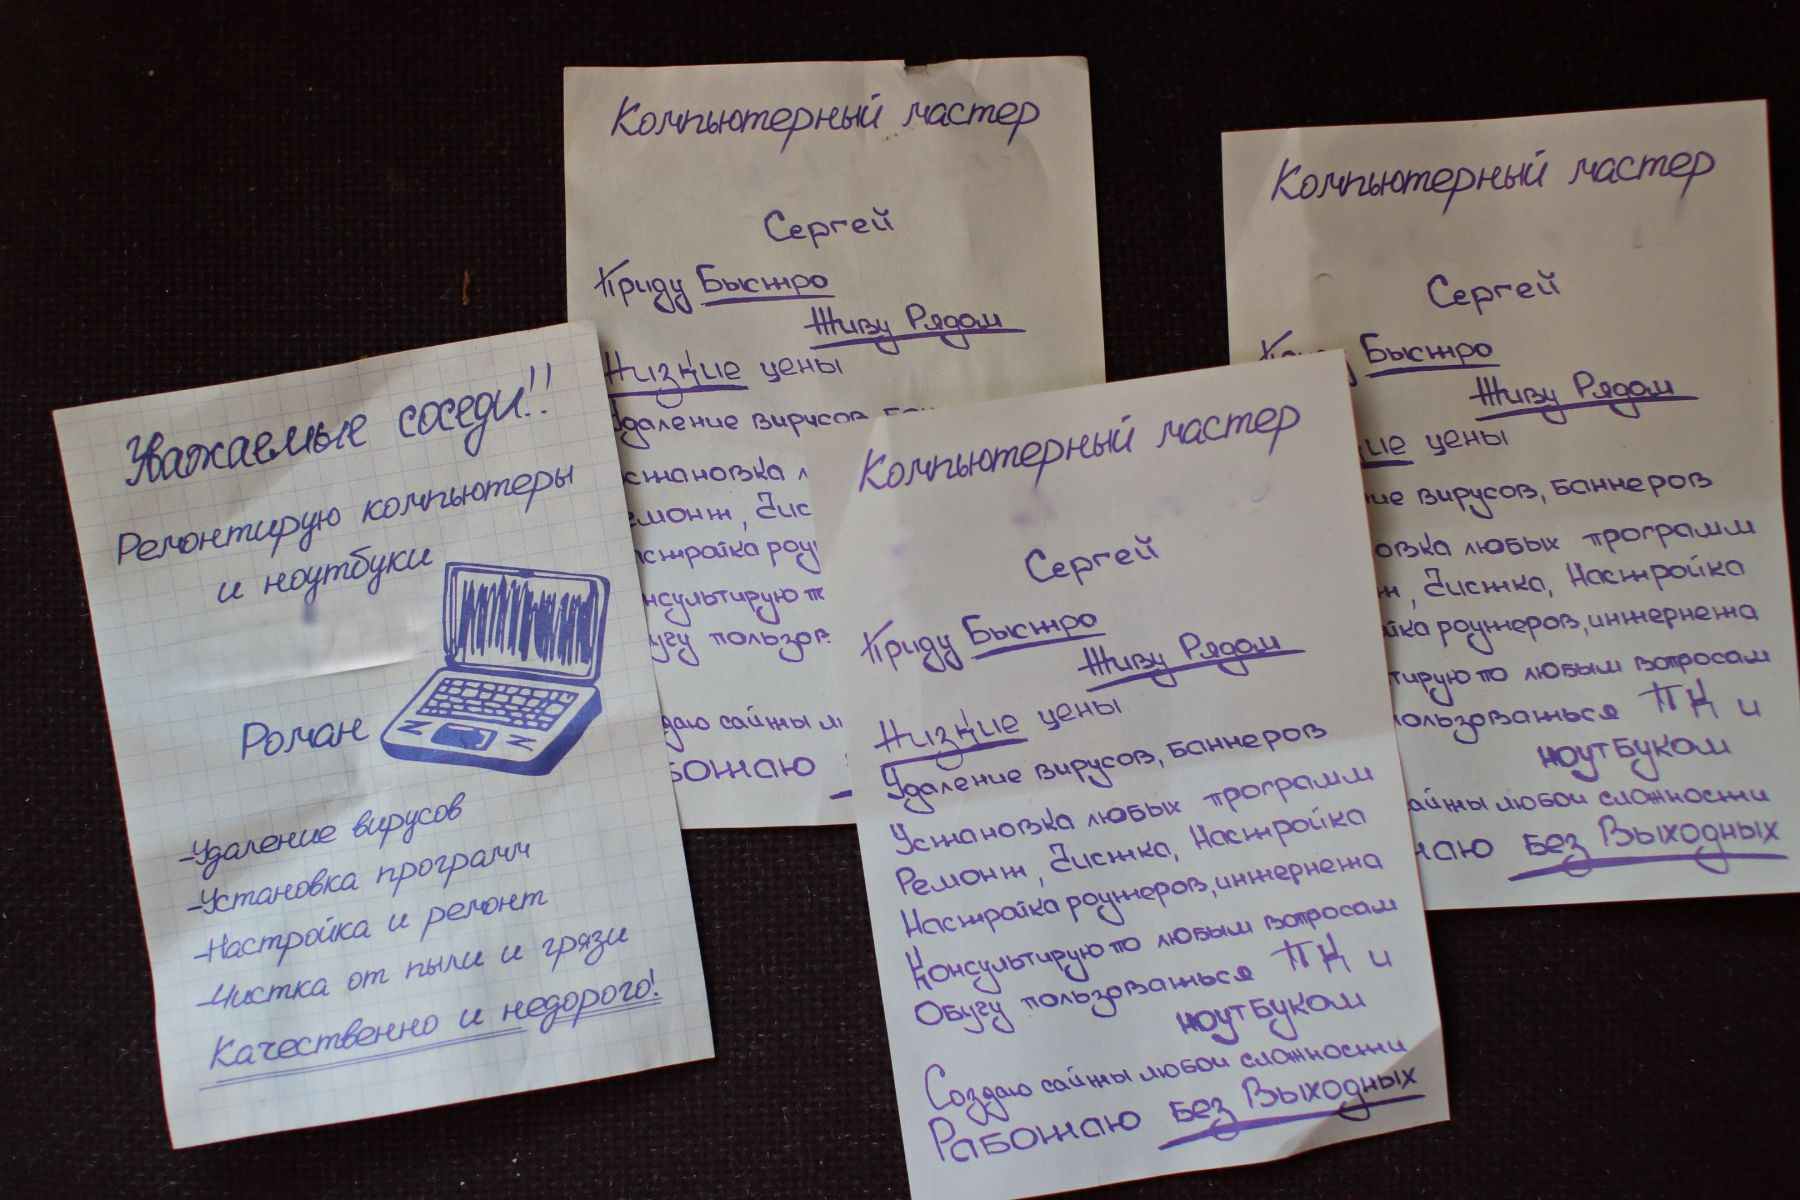 Уважаемые соседи!!
Ремонтирую компьютеры
и ноутбуки
Роман
-Удаление вирусов
-Установка программ
-Настройка и ремонт
-Чистка от пыли и грязи
Качественно и недорого!
Компьютерный мастер
Сергей
Приду Быстро
Живу Рядом
Низкие цены
Удаление вирусов
становка
емонт, Чис
астройка роу
нсультирую
учу пользов
даю сайты
ботаю
Компьютерный мастер
Сергей
Приду Быстро
Живу Рядом
Низкие цены
Удаление вирусов, баннеров
Установка любых программ
Ремонт, Чистка, Настройка
Настройка роутеров, интернета
Консультирую по любым вопросам
Обучу пользоваться ПК и
ноутбуком
Создаю сайты любой сложности
Работаю Без Выходных
Компьютерный мастер
Сергей
Быстро
Живу Рядом
кие цены
ие вирусов, баннеров
овка любых программ
т, Чистка, Настройка
йка роутеров, интернета
тирую по любым вопросам
ользоваться ПК и
ноутбуком
айты любой сложности
таю Без Выходных